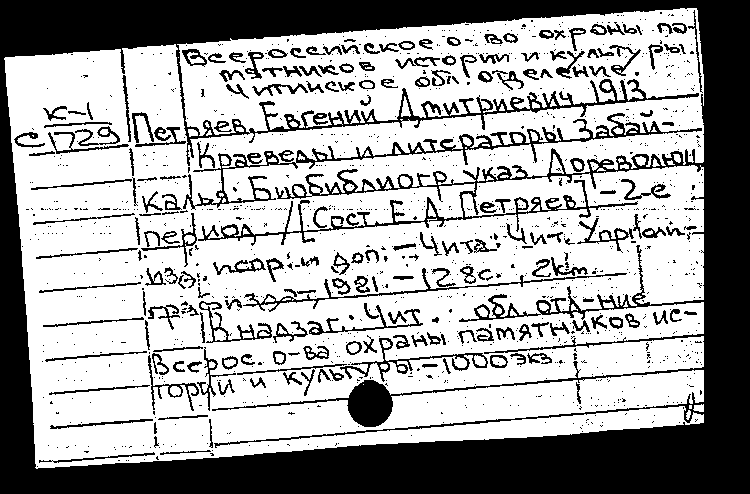 Всероссийское о-во охраны па-
мятников истории и культуры.
Читинское обл. отделение.
К-1
с 1729
Петряев, Евгений Дмитриевич, 1913
Краеведы и литераторы Забай-
калья: Биобиблиогр. указ. Дореволюц.
период. / [Сост. Е. Д. Петряев] - 2-е
изд. испр. и доп. - Чита: Чит. Упрполи-
графиздат, 1981. - 128с., 2km.
В надзаг.: Чит. обл. отд-ние
Всерос. о-ва охраны памятников ис-
тории и культуры. - 1000 экз.